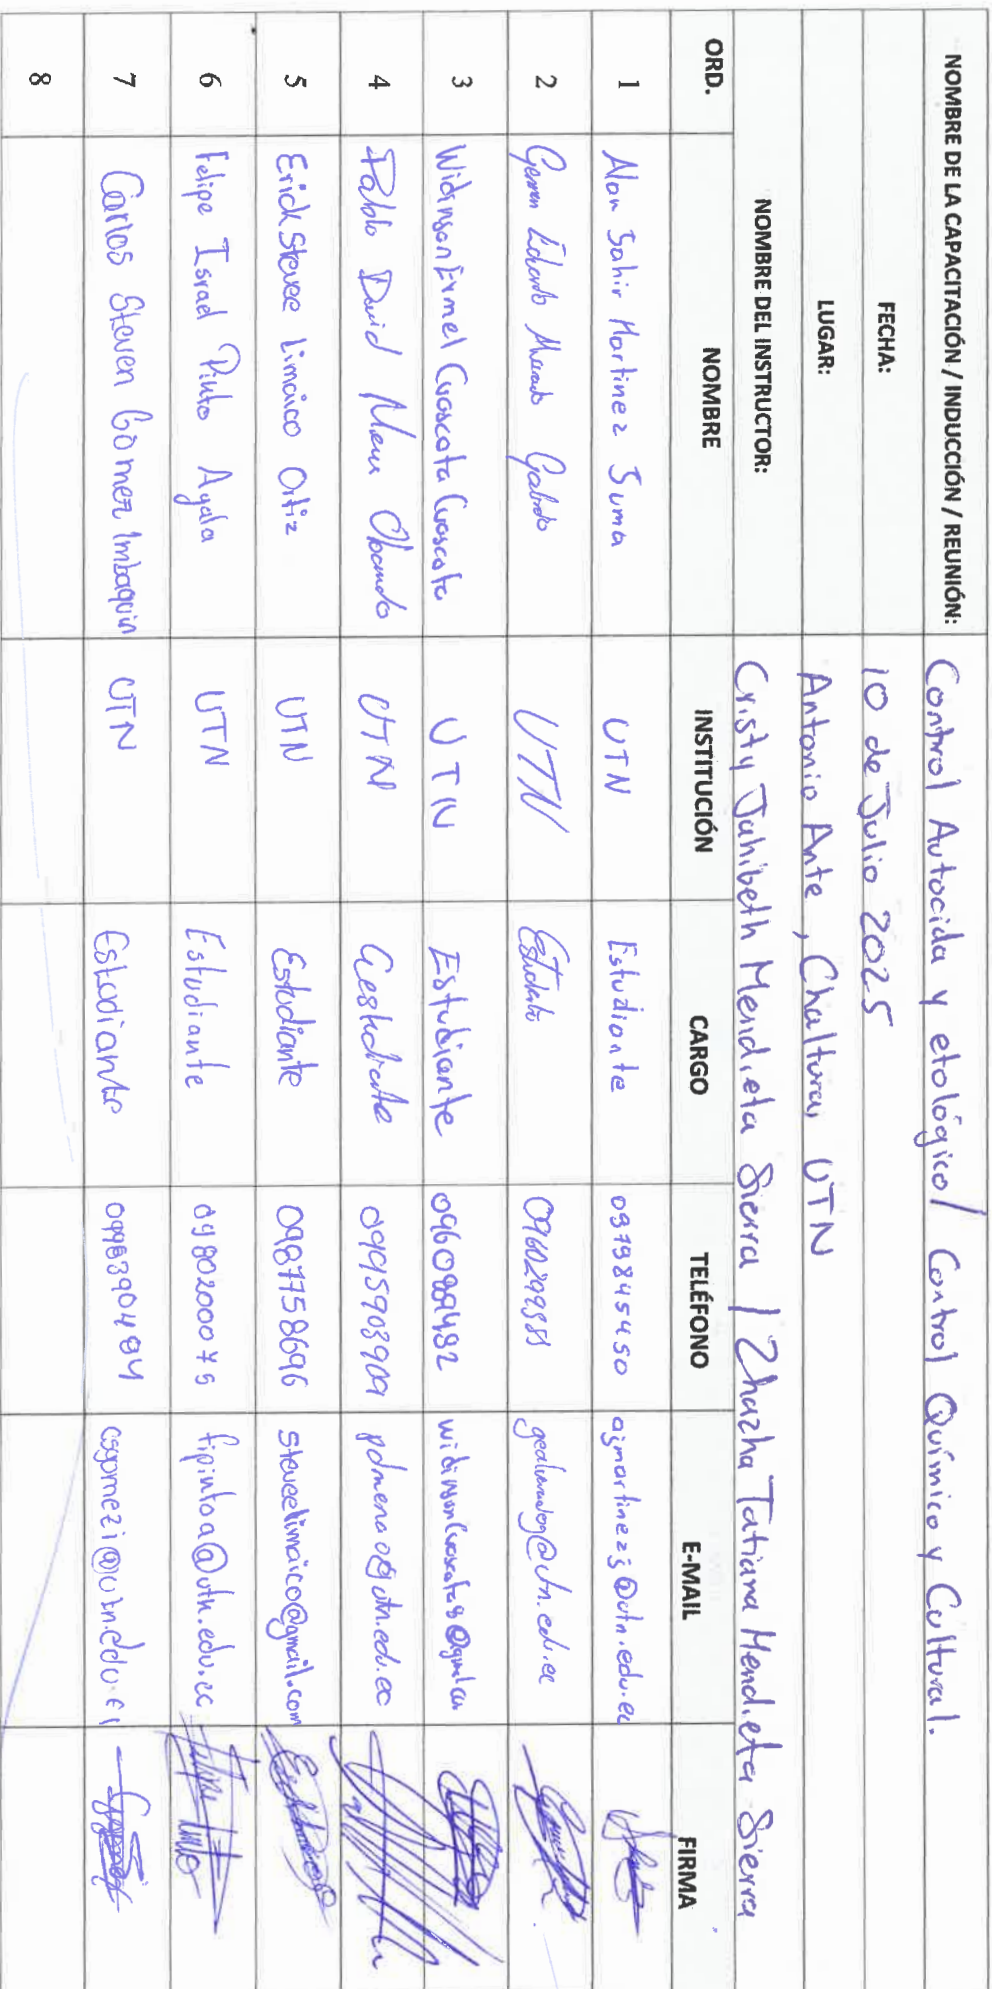 NOMBRE DE LA CAPACITACIÓN / INDUCCIÓN / REUNIÓN: Control Autocida y etológico / Control Químico y Cultural.
FECHA: 10 de Julio 2025
LUGAR: Antonio Ante, Chaltura, UTN
NOMBRE DEL INSTRUCTOR: Cristy Jahibeth Mendieta Sierra / Zhazha Tatiana Mendieta Sierra
ORD. NOMBRE INSTITUCIÓN CARGO TELÉFONO E-MAIL FIRMA
1 Alan Sahir Martinez Juma UTN Estudiante 0979845450 asmartinezj@utn.edu.ec
2 German Eduardo UTN Estudiante
3 Widinson Ermel Cuascota Cuascota UTN Estudiante
4 Pablo David Mena Obando UTN Estudiante 0995903909 pdmenao@utn.edu.ec
5 Erick Stevee Limaico Ortiz UTN Estudiante 0987758696 steveelimaico@gmail.com
6 Felipe Israel Pinto Ayala UTN Estudiante 0980200075 fipintoa@utn.edu.ec
7 Carlos Steven Gómez Imbaquin UTN Estudiante csgomezi@utn.edu.ec
8